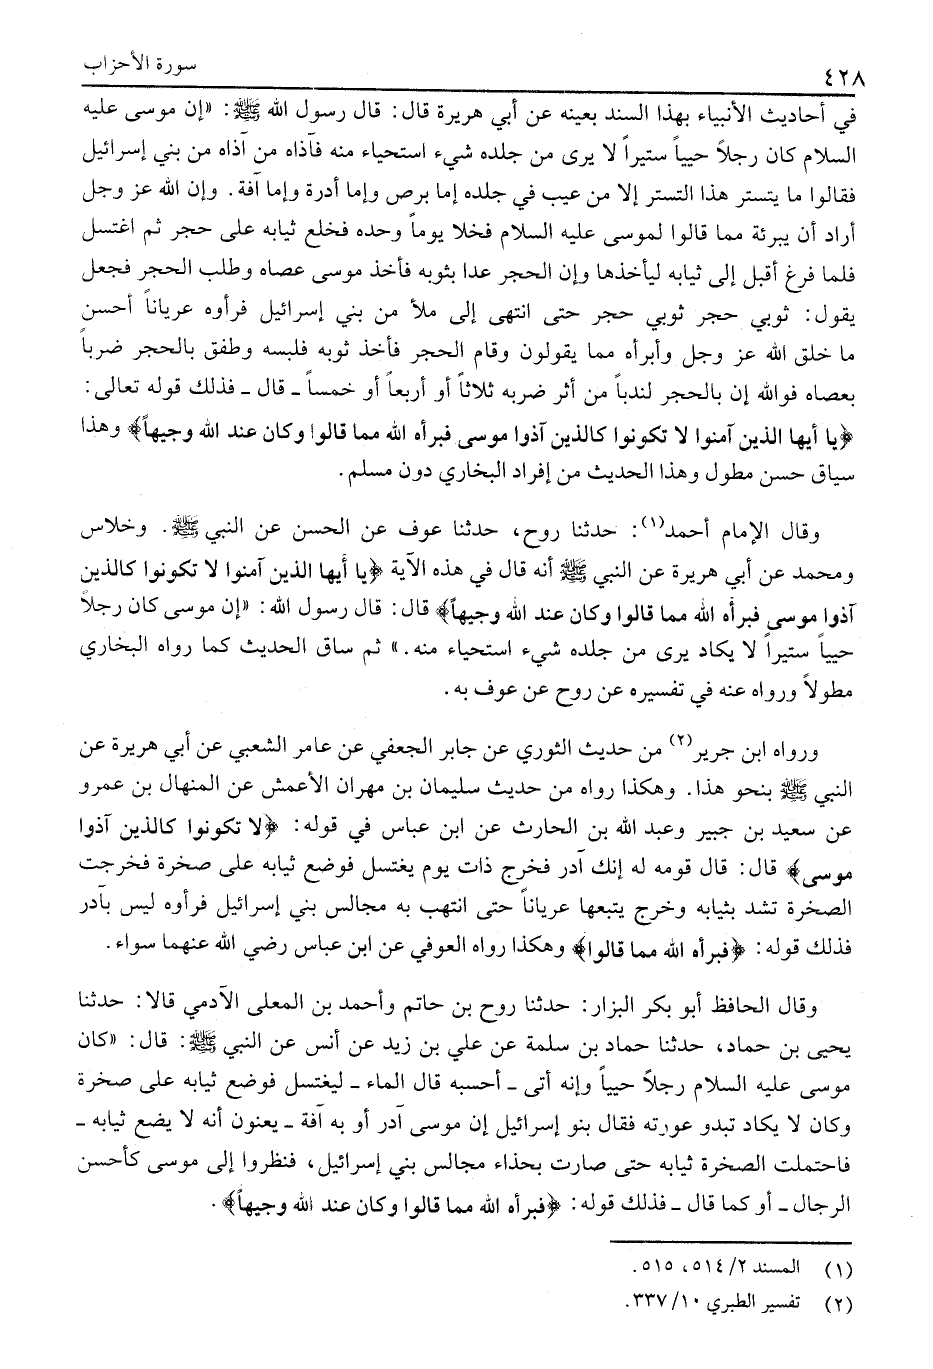 ٤٢٨ سورة الأحزاب
في أحاديث الأنبياء بهذا السند بعينه عن أبي هريرة قال: قال رسول الله ﷺ: «إن موسى عليه
السلام كان رجلاً حيياً ستيراً لا يرى من جلده شيء استحياء منه فآذاه من آذاه من بني إسرائيل
فقالوا ما يتستر هذا التستر إلا من عيب في جلده إما برص وإما أدرة وإما آفة. وإن الله عز وجل
أراد أن يبرئة مما قالوا لموسى عليه السلام فخلا يوماً وحده فخلع ثيابه على حجر ثم اغتسل
فلما فرغ أقبل إلى ثيابه ليأخذها وإن الحجر عدا بثوبه فأخذ موسى عصاه وطلب الحجر فجعل
يقول: ثوبي حجر ثوبي حجر حتى انتهى إلى ملأ من بني إسرائيل فرأوه عرياناً أحسن
ما خلق الله عز وجل وأبرأه مما يقولون وقام الحجر فأخذ ثوبه فلبسه وطفق بالحجر ضرباً
بعصاه فوالله إن بالحجر لندباً من أثر ضربه ثلاثاً أو أربعاً أو خمساً ـ قال ـ فذلك قوله تعالى:
﴿يا أيها الذين آمنوا لا تكونوا كالذين آذوا موسى فبرأه الله مما قالوا وكان عند الله وجيهاً﴾ وهذا
سياق حسن مطول وهذا الحديث من إفراد البخاري دون مسلم.
وقال الإمام أحمد(١): حدثنا روح، حدثنا عوف عن الحسن عن النبي ﷺ. وخلاس
ومحمد عن أبي هريرة عن النبي ﷺ أنه قال في هذه الآية ﴿يا أيها الذين آمنوا لا تكونوا كالذين
آذوا موسى فبرأه الله مما قالوا وكان عند الله وجيهاً﴾ قال: قال رسول الله: «إن موسى كان رجلاً
حيياً ستيراً لا يكاد يرى من جلده شيء استحياء منه.» ثم ساق الحديث كما رواه البخاري
مطولاً ورواه عنه في تفسيره عن روح عن عوف به.
ورواه ابن جرير(٢) من حديث الثوري عن جابر الجعفي عن عامر الشعبي عن أبي هريرة عن
النبي ﷺ بنحو هذا. وهكذا رواه من حديث سليمان بن مهران الأعمش عن المنهال بن عمرو
عن سعيد بن جبير وعبد الله بن الحارث عن ابن عباس في قوله: ﴿لا تكونوا كالذين آذوا
موسى﴾ قال: قال قومه له إنك آدر فخرج ذات يوم يغتسل فوضع ثيابه على صخرة فخرجت
الصخرة تشد بثيابه وخرج يتبعها عرياناً حتى انتهب به مجالس بني إسرائيل فرأوه ليس بآدر
فذلك قوله: ﴿فبرأه الله مما قالوا﴾ وهكذا رواه العوفي عن ابن عباس رضي الله عنهما سواء.
وقال الحافظ أبو بكر البزار: حدثنا روح بن حاتم وأحمد بن المعلى الآدمي قالا: حدثنا
يحيى بن حماد، حدثنا حماد بن سلمة عن علي بن زيد عن أنس عن النبي ﷺ: قال: «كان
موسى عليه السلام رجلاً حيياً وإنه أتى ـ أحسبه قال الماء ـ ليغتسل فوضع ثيابه على صخرة
وكان لا يكاد تبدو عورته فقال بنو إسرائيل إن موسى آدر أو به آفة ـ يعنون أنه لا يضع ثيابه ـ
فاحتملت الصخرة ثيابه حتى صارت بحذاء مجالس بني إسرائيل، فنظروا إلى موسى كأحسن
الرجال ـ أو كما قال ـ فذلك قوله: ﴿فبرأه الله مما قالوا وكان عند الله وجيهاً﴾.
(١) المسند ٢/ ٥١٤، ٥١٥.
(٢) تفسير الطبري ١٠/ ٣٣٧.